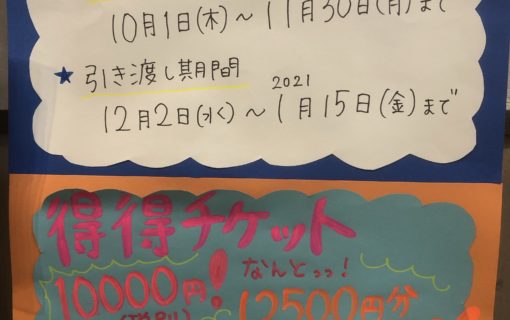 10月1日(木)〜11月30日(月)まで
★引き渡し期間
2021
12月2日(水)〜1月15日(金)まで
得得チケット
10000円! なんとっっ!
(税別) 12500円分